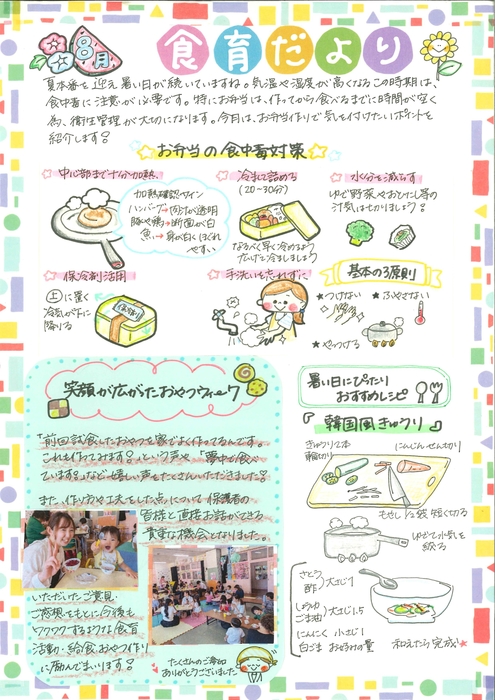 8月
食育だより
夏本番を迎え暑い日が続いていますね。気温や湿度が高くなるこの時期は、
食中毒に注意が必要です。特にお弁当は、作ってから食べるまでに時間が空く
為、衛生管理が大切になります。今月は、お弁当作りで気を付けたいポイントを
紹介します!
お弁当の食中毒対策
中心部まで十分加熱
加熱確認サイン
ハンバーグ→肉汁が透明
豚や鶏→断面が白
魚→身が白くほぐれ
やすい
冷まして詰める
(20~30分)
なるべく早く冷めるよう
だけど冷ましましょう
水分を減らす
ゆで野菜やおひたし等の
汁気はしっかりきりましょう!
保冷剤活用
上に置く
冷気が下に
降りる
保冷剤
手洗いを忘れずに
基本の3原則
★つけない ★ふやさない
★やっつける
笑顔が広がったおやつウィーク
「前回試食したおやつを家でよく作ってるんです。
これも作ってみます!」という声や「夢中で食べ
ています!」など嬉しい声をたくさんいただきました!
また、作り方や工夫をした点について保護者の
皆様と直接お話ができる
貴重な機会となりました。
いただいたご意見・
ご感想をもとに今後も
ワクワクするような食育
活動・給食おやつ作り
に励んでまいります!
たくさんのご参加
ありがとうございました
暑い日にぴったり
おすすめレシピ
『韓国風きゅうり』
きゅうり2本
輪切り
にんじん せん切り
もやし 1/2袋 短く切る
ゆでて水気を
絞る
さとう
酢 大さじ1
しょうゆ
ごま油 大さじ1.5
にんにく 小さじ1
白ごま お好みの量
和えたら完成